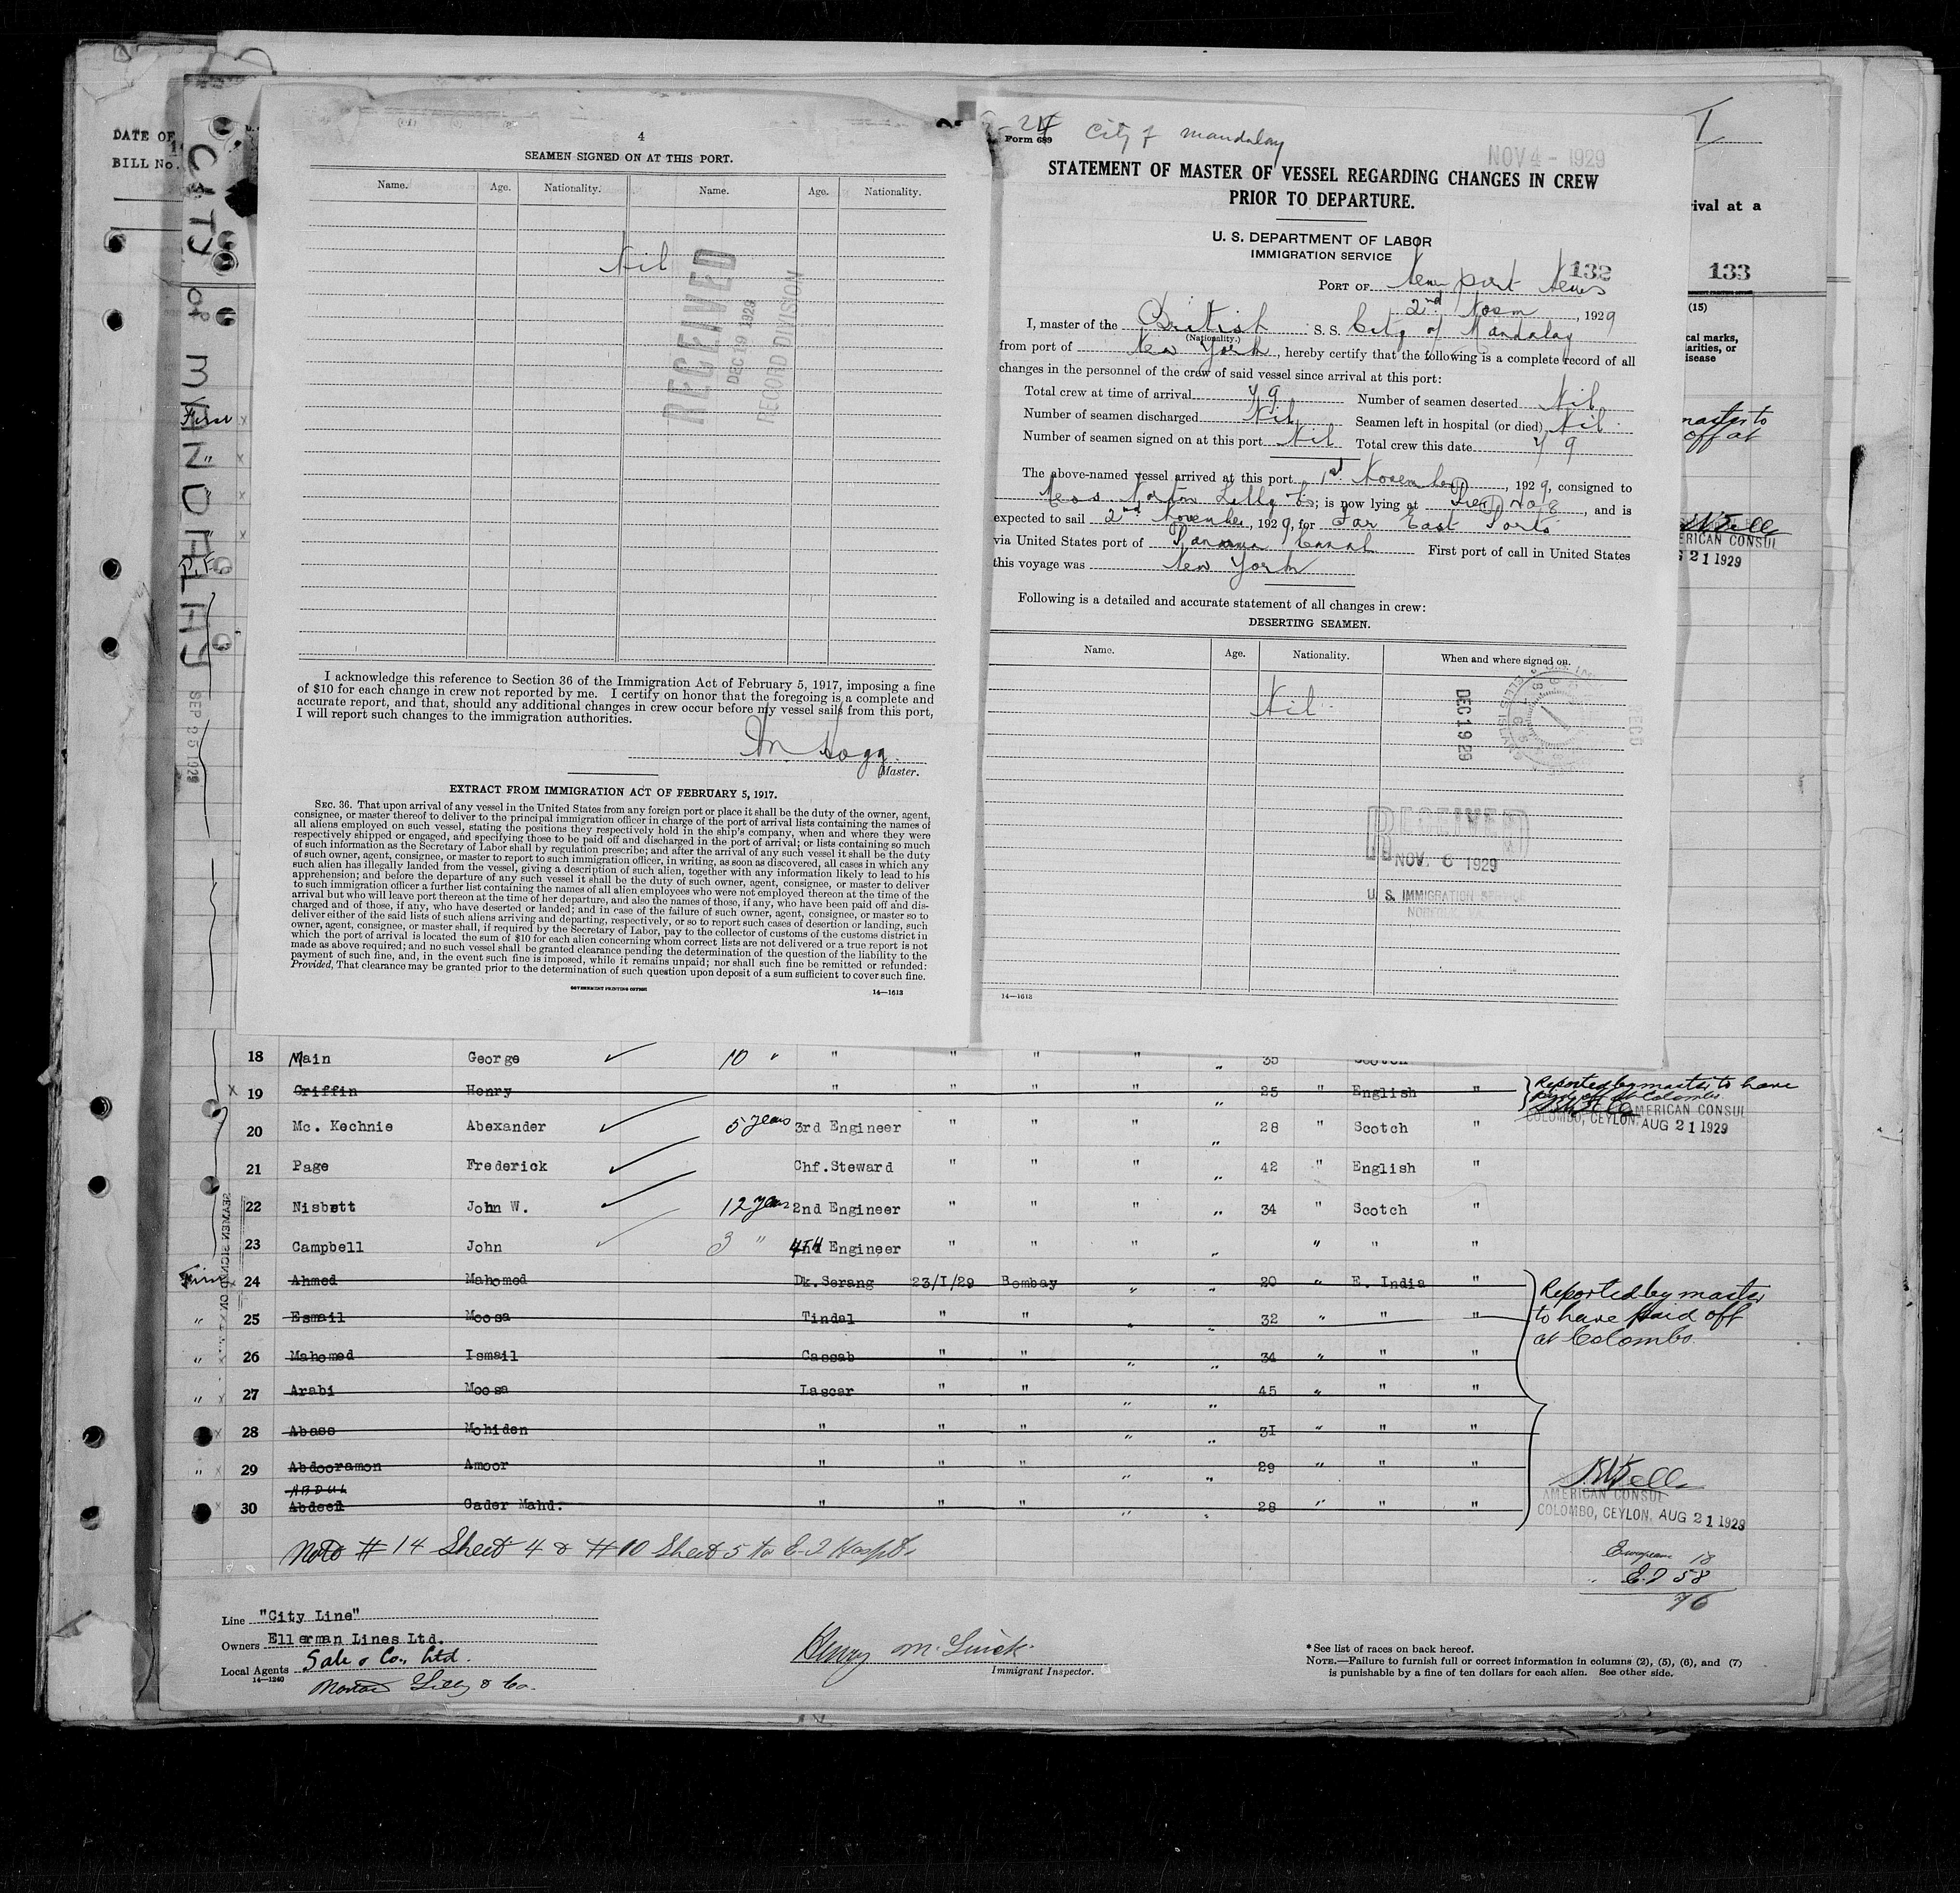 DATE OF
BILL No.
CITY OF MANDALAY
SEP 25 1929
4
SEAMEN SIGNED ON AT THIS PORT.
Name. Age. Nationality. Name. Age. Nationality.
Nil
RECEIVED
DEC 19 1929
RECORD DIVISION
I acknowledge this reference to Section 36 of the Immigration Act of February 5, 1917, imposing a fine
of $10 for each change in crew not reported by me. I certify on honor that the foregoing is a complete and
accurate report, and that, should any additional changes in crew occur before my vessel sails from this port,
I will report such changes to the immigration authorities.
M. Hogg
Master.
EXTRACT FROM IMMIGRATION ACT OF FEBRUARY 5, 1917.
SEC. 36. That upon arrival of any vessel in the United States from any foreign port or place it shall be the duty of the owner, agent,
consignee, or master thereof to deliver to the principal immigration officer in charge of the port of arrival lists containing the names of
all aliens employed on such vessel, stating the positions they respectively hold in the ship's company, when and where they were
respectively shipped or engaged, and specifying those to be paid off and discharged in the port of arrival; or lists containing so much
of such information as the Secretary of Labor shall by regulation prescribe; and after the arrival of any such vessel it shall be the duty
of such owner, agent, consignee, or master to report to such immigration officer, in writing, as soon as discovered, all cases in which any
such alien has illegally landed from the vessel, giving a description of such alien, together with any information likely to lead to his
apprehension; and before the departure of any such vessel it shall be the duty of such owner, agent, consignee, or master to deliver
to such immigration officer a further list containing the names of all alien employees who were not employed thereon at the time of the
arrival but who will leave port thereon at the time of her departure, and also the names of those, if any, who have been paid off and dis-
charged and of those, if any, who have deserted or landed; and in case of the failure of such owner, agent, consignee, or master so to
deliver either of the said lists of such aliens arriving and departing, respectively, or so to report such cases of desertion or landing, such
owner, agent, consignee, or master shall, if required by the Secretary of Labor, pay to the collector of customs of the customs district in
which the port of arrival is located the sum of $10 for each alien concerning whom correct lists are not delivered or a true report is not
made as above required; and no such vessel shall be granted clearance pending the determination of the question of the liability to the
payment of such fine, and, in the event such fine is imposed, while it remains unpaid; nor shall such fine be remitted or refunded:
Provided, That clearance may be granted prior to the determination of such question upon deposit of a sum sufficient to cover such fine.
GOVERNMENT PRINTING OFFICE 14—1613
Form 689 City of Mandalay
NOV 4 - 1929
STATEMENT OF MASTER OF VESSEL REGARDING CHANGES IN CREW
PRIOR TO DEPARTURE.
U. S. DEPARTMENT OF LABOR
IMMIGRATION SERVICE
132
PORT OF Newport News
2nd Novm, 1929
I, master of the British S. S. City of Mandalay
(Nationality.)
from port of New York, hereby certify that the following is a complete record of all
changes in the personnel of the crew of said vessel since arrival at this port:
Total crew at time of arrival 79 Number of seamen deserted Nil
Number of seamen discharged Nil Seamen left in hospital (or died) Nil
Number of seamen signed on at this port Nil Total crew this date 79
The above-named vessel arrived at this port 1st November, 1929, consigned to
Mess Norton Lilly Co; is now lying at Pier No 8, and is
expected to sail 2nd November, 1929, for Far East Ports
via United States port of Panama Canal First port of call in United States
this voyage was New York
Following is a detailed and accurate statement of all changes in crew:
DESERTING SEAMEN.
Name. Age. Nationality. When and where signed on.
Nil
DEC 19 29
RECEIVED
NOV. 6 1929
U. S. IMMIGRATION SERVICE
NORFOLK, VA.
14—1613
rival at a
133
(15)
cal marks,
larities, or
isease
master to
off at
ERICAN CONSUL
G 21 1929
18 Main George 10 " " " " " " 35 Scotch
19 Griffin Henry " " " " " 25 " English " Reported by master to have
paid off at Colombo.
AMERICAN CONSUL
COLOMBO, CEYLON. AUG 21 1929
20 Mc. Kechnie Abexander 5 years 3rd Engineer " " " " 28 " Scotch "
21 Page Frederick Chf.Steward " " " " 42 " English "
22 Nisbett John W. 12 years 2nd Engineer " " " " 34 " Scotch "
23 Campbell John 3 " 4TH Engineer " " " " " " "
24 Ahmed Mahomed Dk.Serang 23/I/29 Bombay " " 20 " E. India "
Reported by master
to have paid off
at Colombo.
" 25 Esmail Moosa Tindal " " " " 32 " " "
" 26 Mahomed Ismail Cassab " " " " 34 " " "
" 27 Arabi Moosa Lascar " " " " 45 " " "
28 Abass Mohiden " " " " " 31 " " "
" 29 Abdooramon Amoor " " " " " 29 " " "
ABDUL
30 Abdeen Cader Mahd. " " " " " 28 " " "
AMERICAN CONSUL
COLOMBO, CEYLON. AUG 21 1929
SEAMEN SIGNED ON
Note # 14 Sheet 4 & # 10 Sheet 5 to E-I Hospt.
European 18
E.I 58
76
Line "City Line"
Owners Ellerman Lines Ltd.
Local Agents Sale & Co., Ltd.
14—1240
Norton Lilly & Co.
Immigrant Inspector.
* See list of races on back hereof.
NOTE.—Failure to furnish full or correct information in columns (2), (5), (6), and (7)
is punishable by a fine of ten dollars for each alien. See other side.